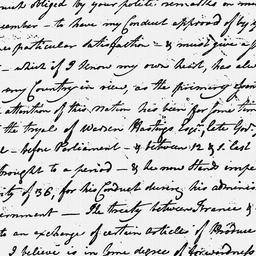 much obliged by your polite remarks on m
cember – to have my Conduct approved of by
es particular Satisfaction – & must give a f
– which if I know my own heart, has alw
my Country in view, as the primary
attention of this nation has been for some time
the tryal of Warren Hastings Esqr. late Gov.
e – before Parliament – & between 12 & 6 last
brought to a period – & he now Stands impe
ity of 36, for his Conduct during his adminis
ernment – The treaty between France &
to an exchange of certain Articles of Produce
I believe is in some degree of forwardness